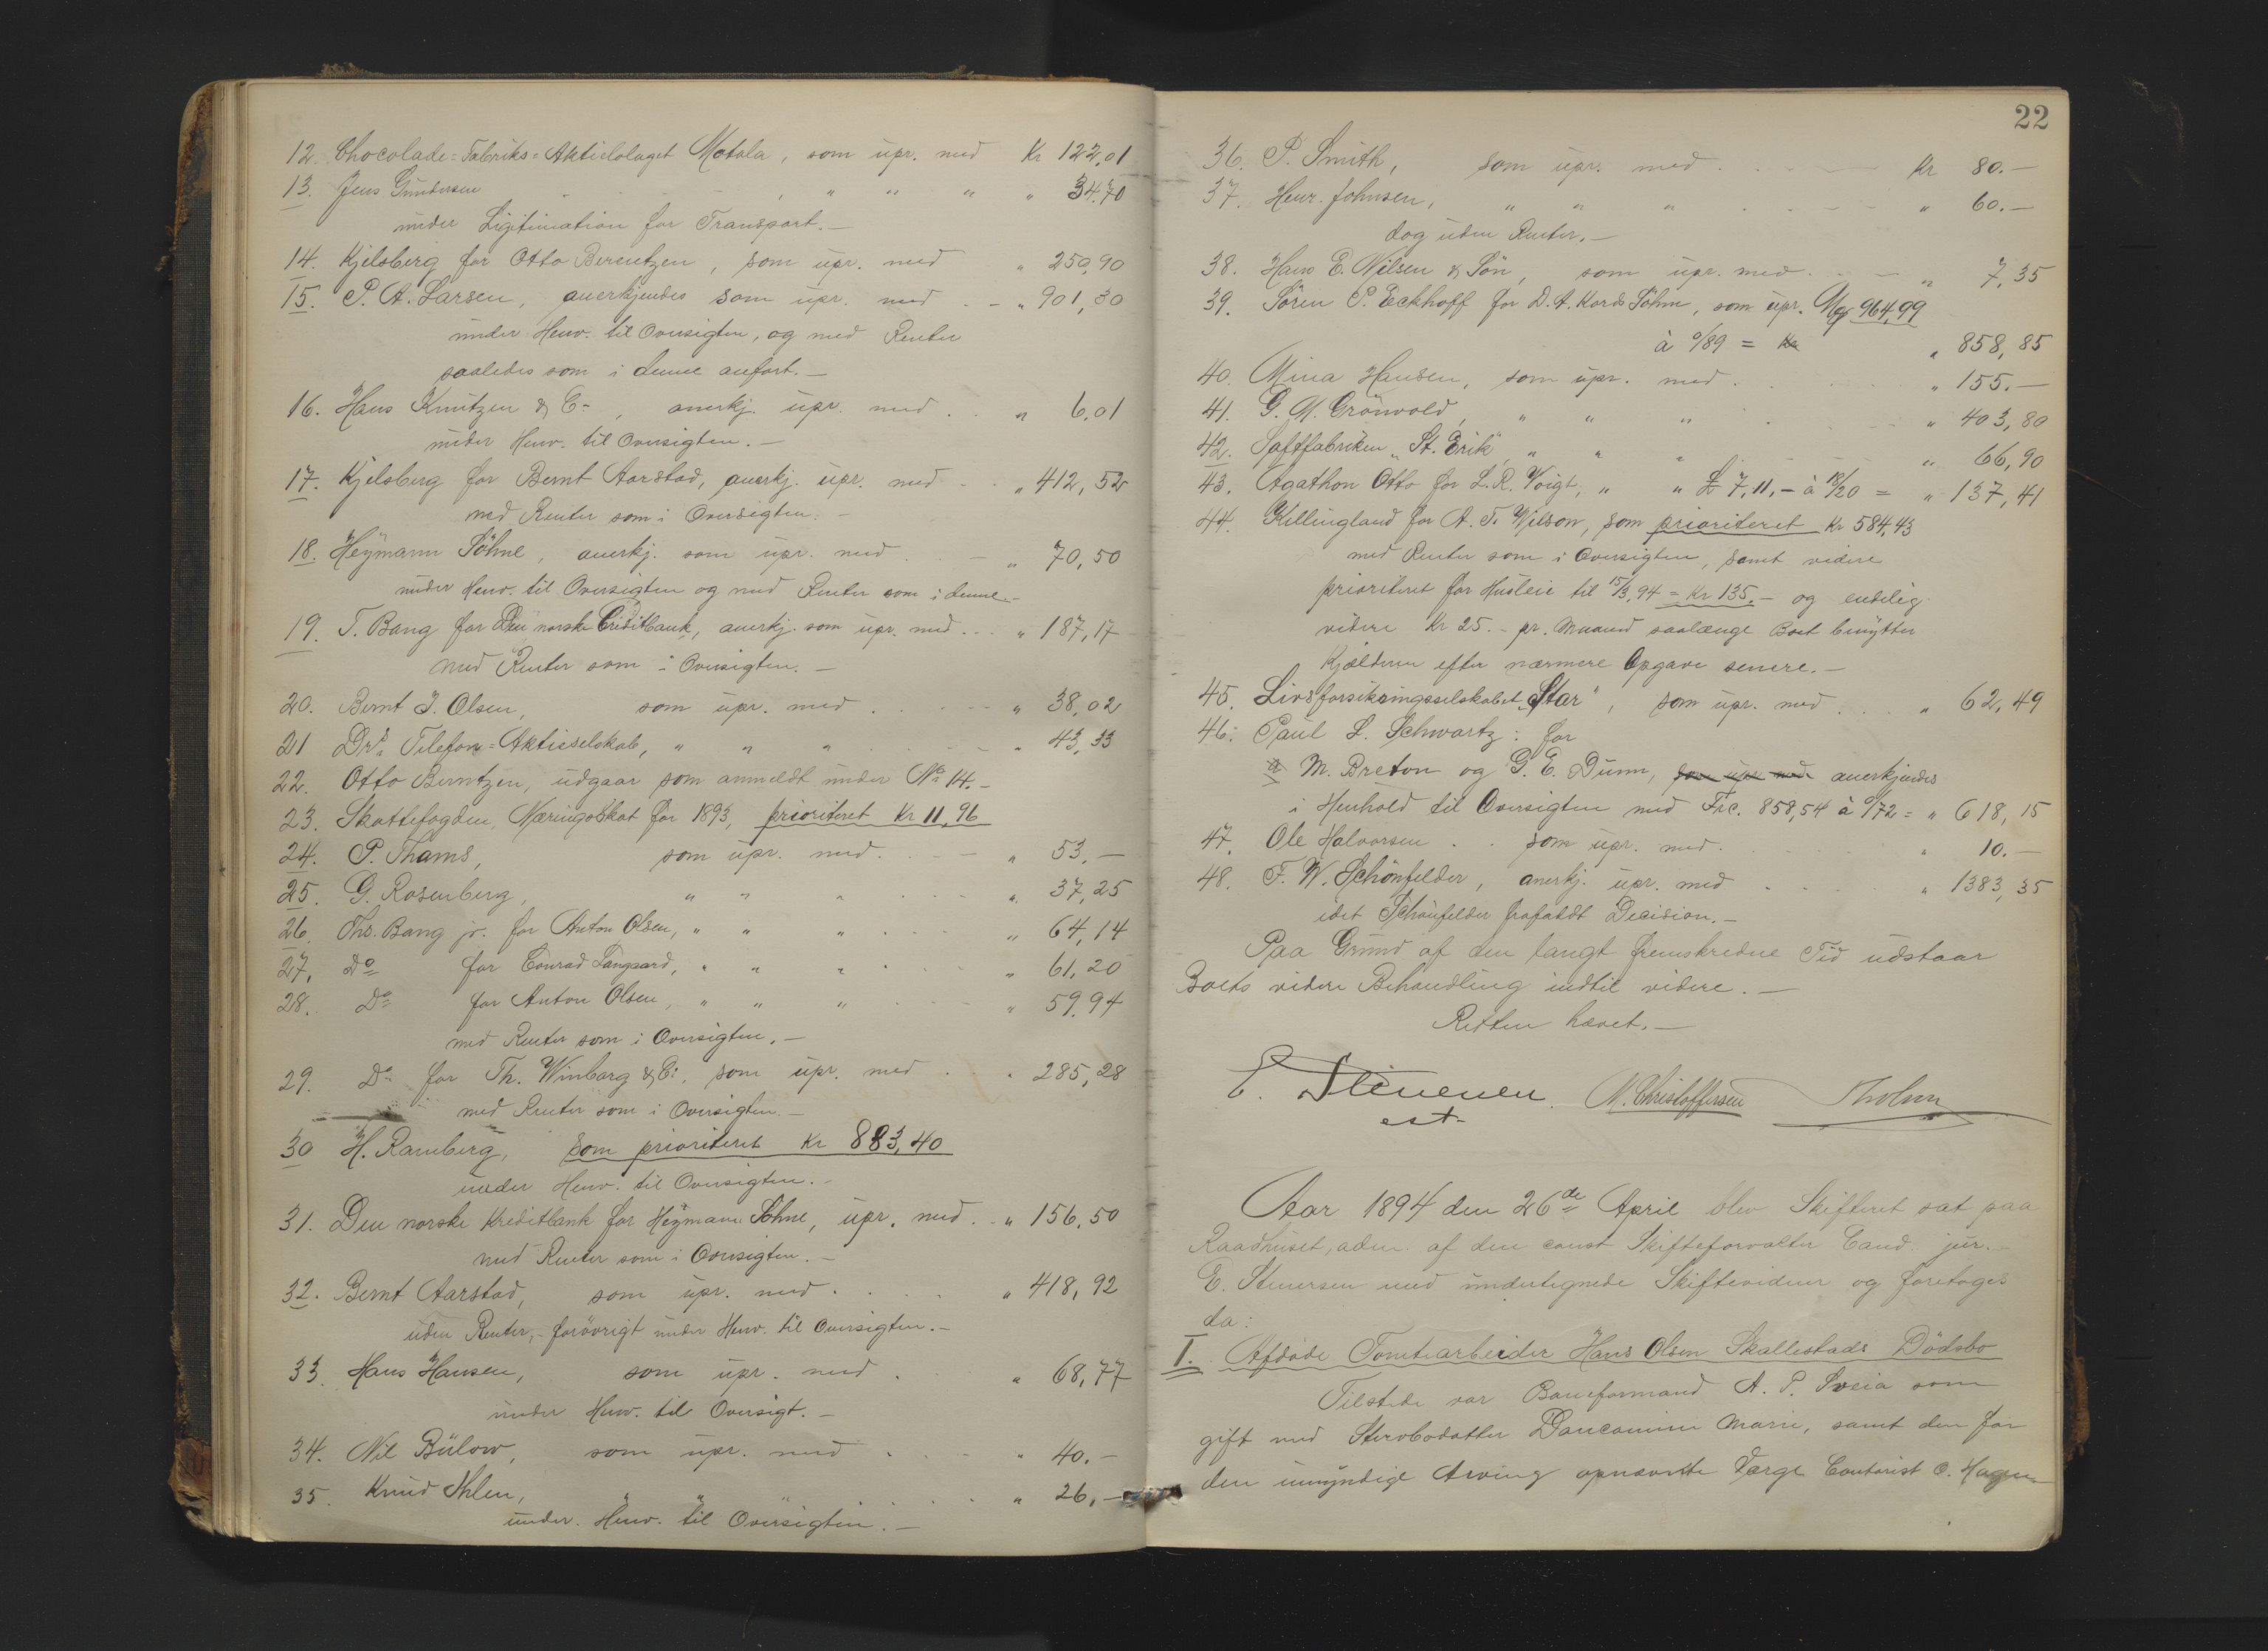 12. Chocolade=Fabriks=Aktiebolaget Motala, som upr. med Kr 122,01
13. Jens Gundersen , " " " " 34.70
under Ligitimation for Transport.—
14. Kjelsberg for Otto Berentzen, som upr. med " 250,90
15. P. A. Larsen, anerkjendes som upr. med . — " 901,30
under Henv. til Oversigten, og med Renter
saaledes som i denne anført.—
16. Hans Knutzen & Co, anerkj. upr. med . . " 6,01
under Henv. til Oversigten.—
17. Kjelsberg for Bernt Aarstad, anerkj. upr. med - . " 412,52
med Renter som i Oversigten.—
18. Heymann Söhne, anerkj. som upr. med . — " 70,50
under Henv. til Oversigten og med Renter som i denne.-
19. T. Bang for Den norske Creditbank, anerkj. som upr. med... " 187,17
med Renter som i Oversigten.—
20. Bernt J. Olsen, som upr. med . . . . " 38,02
21 Drs. Telefon=Aktieselskab, " " " . . " 43,33
22. Otto Berntzen, udgaar som anmeldt under No 14.-
23. Skattefogden, Næringsskat for 1893, prioriteret Kr 11,96
24. P. Thams, som upr. med. . . — " 53.—
25. G. Rosenberg, " " " . . . " 37,25
26. Ths. Bang jr. for Anton Olsen, " " " . . . " 64,14
27. Do for Conrad Langaard, " " " . . . " 61,20
28. Do for Anton Olsen, " " " . . . " 59,94
med Renter som i Oversigten.—
29. Do for Th. Winborg & Co., som upr. med . " 285,28
med Renter som i Oversigten.—
30 H. Ramberg, som prioriteret Kr 883,40
under Henv. til Oversigten.-
31. Den norske Kreditbank for Heymann Söhne, upr. med . . " 156,50
med Renter som i Oversigten.—
32. Bernt Aarstad, som upr. med . . . . " 418,92
uden Renter,- forøvrigt under Henv. til Oversigten.—
33. Hans Hansen, som upr. med . . . " 68,77
under Henv. til Oversigt.—
34. Nil Bülow, som upr. med . . . " 40.-
35. Knud Ihlen, " " " . . . . " 26,—
under Henv. til Oversigten.—
22
36. P. Smith, som upr. med . . . — Kr 80.—
37. Henr. Johnsen, " " " . . . " 60.—
dog uden Renter.—
38. Hans E. Nilsen & Sön, som upr. med . . — " 7,35
39. Sören P. Eckhoff for D. A. Kords Söhne, som upr. Mk 964,99
à 0/89 = Kr " 858,85
40. Mina Hansen, som upr. med . . . " 155.—
41. G. M. Grönvold, " " " . . . " 403,80
42. Saftfabriken "St. Erik", " " " . . . " 66,90
43. Agathon Otto for L. R. Voigt, " " £ 7,11,- à 18/20 = " 137,41
44. Killingland for A. T. Wilson, som prioriteret Kr 584,43
med Renter som i Oversigten, samt videre
prioriteret for Husleie til 15/3.94 = Kr 135.- og endelig
videre Kr 25.- pr. Maaned saalænge Boet benytter
Kjælderen efter nærmere Opgave senere.—
45. Livsforsikringsselskabet "Star", som upr. med . . . " 62,49
46: Paul L. Schwartz: for
a M. Breton og G. E. Dunn, som upr. med anerkjendes
i Henhold til Oversigten med Frc. 858,54 à 0/72 = " 618,15
47. Ole Halvorsen . . som upr. med . . . " 10.—
48. F. W. Schönfelder, anerkj. upr. med . . . " 1383,35
idet Schönfelder frafaldt Decision.—
Paa Grund af den langt fremskredne Tid udstaar
Boets videre Behandling indtil videre.—
Retten hævet.—
E. Stenersen. M. Christoffersen
cst.
Aar 1894 den 26de April blev Skifteret sat paa
Raadhuset, adm. af den const Skifteforvalter Cand. jur.-
E. Stenersen med undertegnede Skiftevidner og foretoges
da:
I. Afdøde Tomtearbeider Hans Olsen Skallestads Dödsbo
Tilstede var Baneformand A. P. Sveia som
gift med Stervbodatter Marie, samt den for
den umyndige Arving opnævnte Værge Contorist O. Hagen